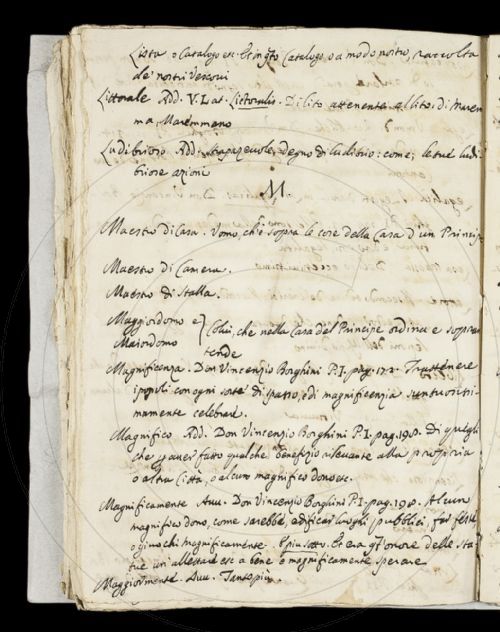 Lista o Catalogo etc. Et in qto Catalogo, o a modo nostro, raccolta
de' nostri Vescovi
Littorale Add. V. Lat. Littoralis. Di lito attenente al lito. di Marem
ma, Maremmano
Ludibrioso Add. Strapazzevole, degno di ludibrio: come, le tue ludi
briose azioni
M.
Maestro di Casa. Uomo, ch'è sopra le cose della Casa d'un Principe
Maestro di Camera.
Maestro di Stalla.
Maggiordomo e
Maiordomo } Colui, che nella Casa del Principe ordina e soprin
tende
Magnificenza. Don Vincenzio Borghini P.I. pag. 172. Trattenere
i popoli con ogni sorte di spasso, e di magnificenzia suntuosissi
mamente celebrare.
Magnifico Add. Don Vincenzio Borghini P.I. pag. 198. Di quegli
che p aver fatto qualche benefizio rilevante alla propria
o altra Città, o alcuno magnifico dono etc.
Magnificamente Avv. Don Vincenzio Borghini P.I. pag. 198. Alcun
magnifico dono, come sarebbe edificar luoghi pubblici, far feste
o giuochi magnificamente. E più sotto. Et era qto onore delle sta
tue un' allettare etc a bene e magnificamente sperare
Maggiormente Avv. Tanto più.